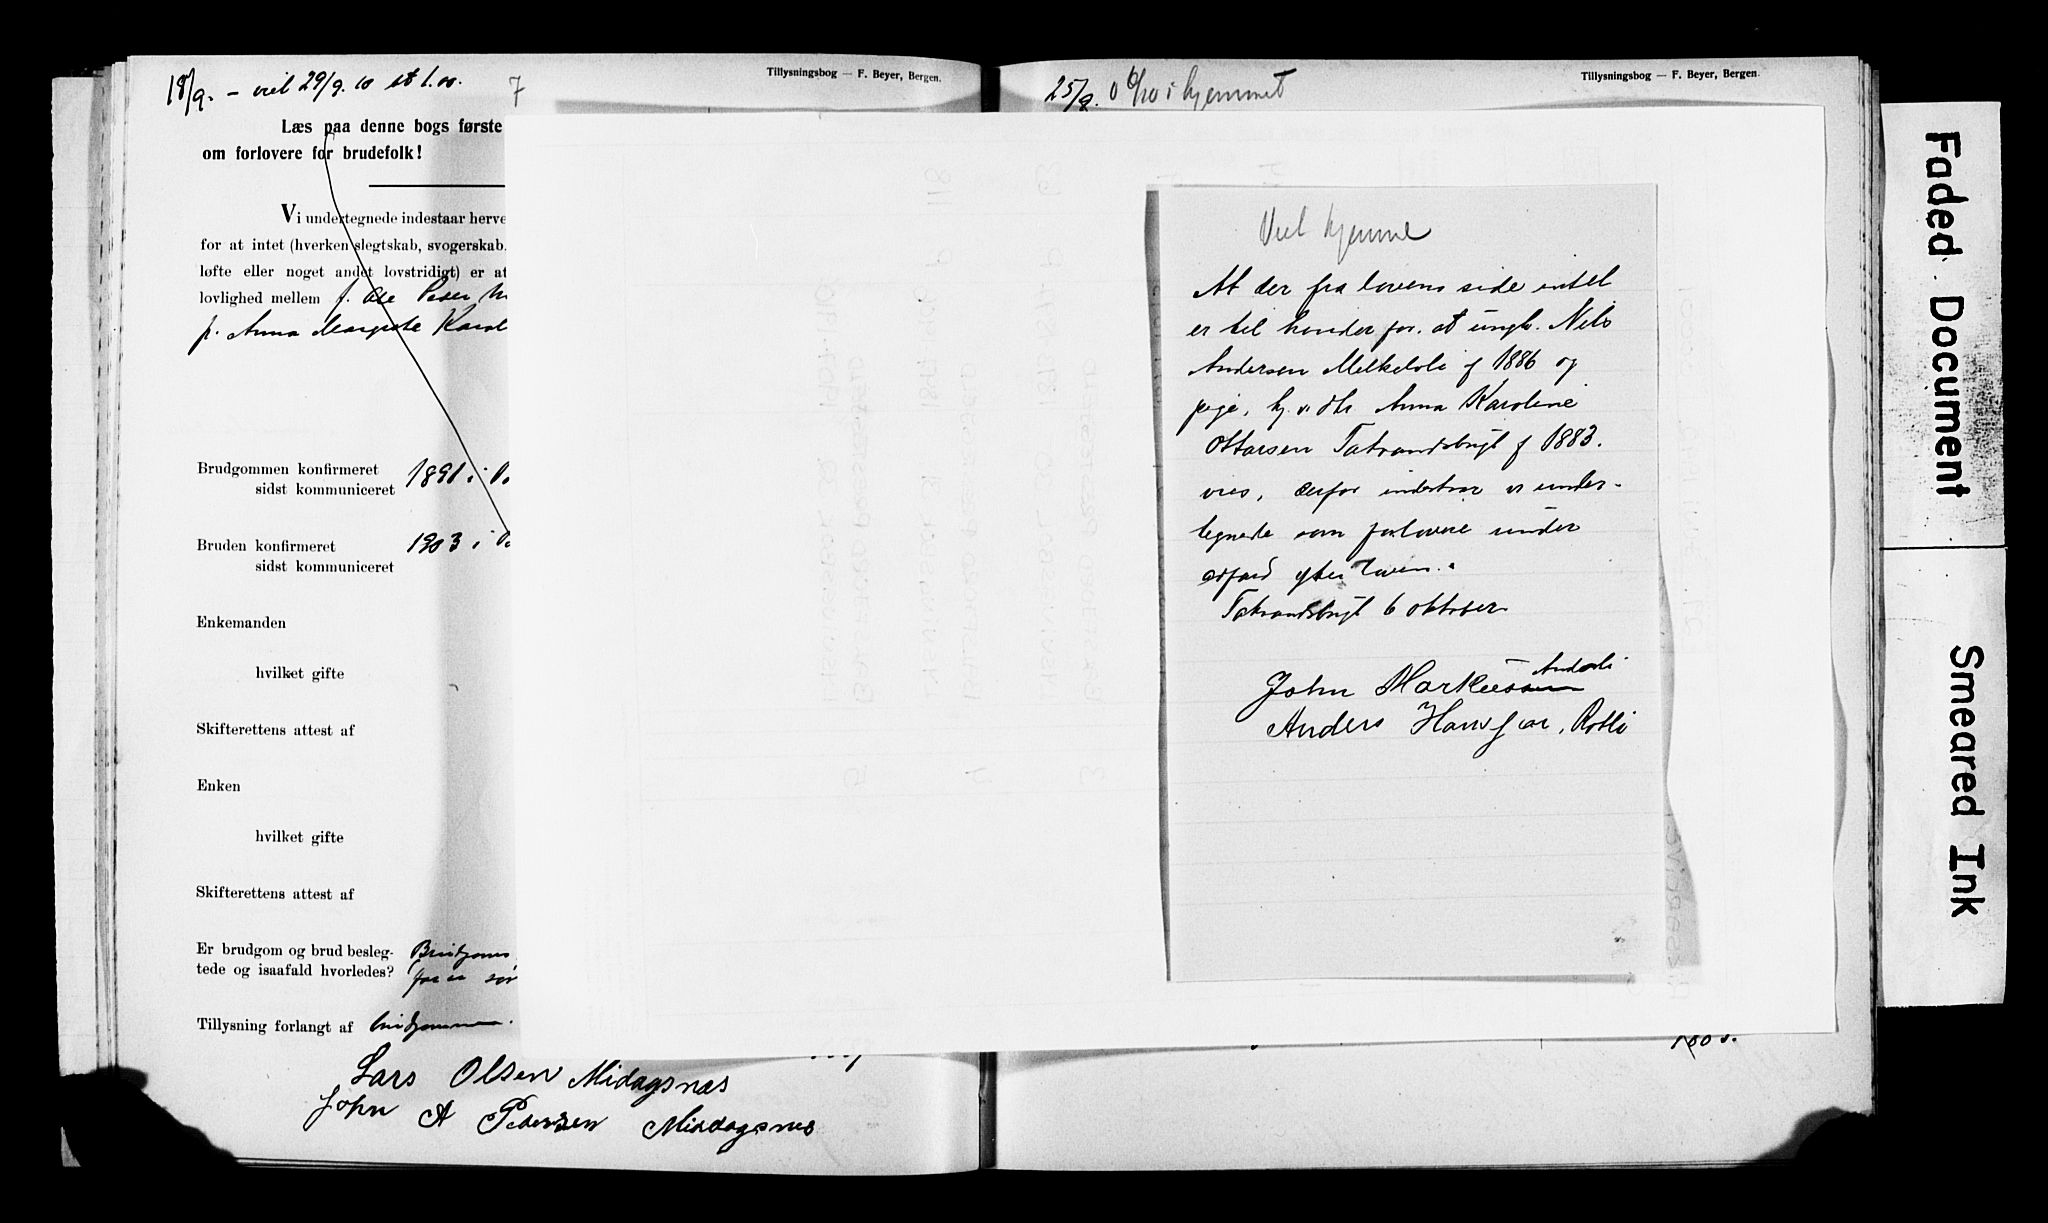 18/9. – viet 29/9. 10 at 1.00.
7
Tillysningsbog — F. Beyer, Bergen.
Læs paa denne bogs første
om forlovere for brudefolk!
Vi undertegnede indestaar herve
for at intet (hverken slegtskab, svogerskab,
løfte eller noget andet lovstridigt) er at
lovlighed mellem f. Ole Peder
p. Anna Margrete Karol
Brudgommen konfirmeret 1891 i
sidst kommuniceret
Bruden konfirmeret 1903 i
sidst kommuniceret
Enkemanden
hvilket gifte
Skifterettens attest af
Enken
hvilket gifte
Skifterettens attest af
Er brudgom og brud besleg-
tede og isaafald hvorledes?
Tillysning forlangt af brudgommen.
Lars Olsen Midagsnæs
John A Pedersen Middagsnes
25/9. 6/10 i hjemmet
Tillysningsbog — F. Beyer, Bergen.
Viet hjemme
At der fra lovens side intet
er til hinder for, at ungk. Nils
Andersen Melkeloli f 1886 og
pige, Anna Karoline
Ottarsen Tatrandsbugt f 1883.
vies, derfor indestaar vi under-
tegnede som forlovere under
ansvar efter loven.
Tatrandsbugt 6 oktober
John Markussen
Anders Hansjor, Rotli
Faded Document
Smeared Ink